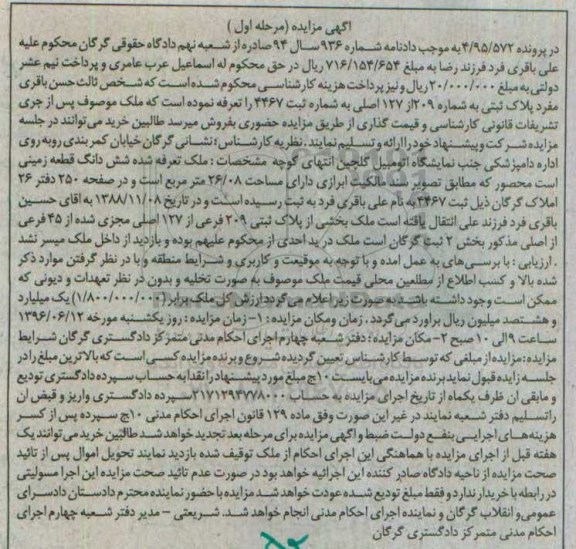 اگهی مزایده (مرحله اول )
در پرونده ۴/۹۵/۵۷۲ به موجب دادنامه شماره ۹۳۶ سال ۹۴ صادره از شعبه نهم دادگاه حقوقی گرگان محکوم علیه
علی باقری فرد فرزند رضا به مبلغ ۷۱۶/۱۵۴/۶۵۴ ریال در حق محکوم له اسماعیل عرب عامری و پرداخت نیم عشر
دولتی به مبلغ ۲۰/۰۰۰/۰۰۰ ریال و نیز پرداخت هزینه کارشناسی محکوم شده است که شخص ثالث حسن باقری
مفرد پلاک ثبتی به شماره ۲۰۹ از ۱۲۷ اصلی به شماره ثبت ۴۴۶۷ را تعرفه نموده است که ملک موصوف پس از جری
تشریفات قانونی کارشناسی و قیمت گذاری از طریق مزایده حضوری بفروش میرسد طالبین خرید می توانند در جلسه
مزایده شرکت و پیشنهاد خود را ارائه و تسلیم نمایند. نظریه کارشناس؛ نشانی گرگان خیابان کمربندی روبه روی
اداره دامپزشکی جنب نمایشگاه اتومبیل گلچین انتهای کوچه مشخصات : ملک تعرفه شده شش دانگ قطعه زمینی
است محصور که مطابق تصویر سند مالکیت ابرازی دارای مساحت ۲۶/۰۸ متر مربع است و در صفحه ۲۵۰ دفتر ۲۶
املاک گرگان ذیل ثبت ۴۴۶۷ به نام علی باقری فرد به ثبت رسیده است و در تاریخ ۱۳۸۸/۱۱/۰۸ به اقای حسین
باقری فرد فرزند علی انتقال یافته است ملک بخشی از پلاک ثبتی ۲۰۹ فرعی از ۱۲۷ اصلی مجزی شده از ۴۵ فرعی
از اصلی مذکور بخش ۲ ثبت گرگان است ملک در ید احدی از محکوم علیهم بوده و بازدید از داخل ملک میسر نشد
. ارزیابی : با بررسی های به عمل امده و با توجه به موقعیت و کاربری و شرایط منطقه و با در نظر گرفتن موارد ذکر
شده بالا و کسب اطلاع از مطلعین محلی قیمت ملک موصوف به صورت تخلیه و بدون در نظر تعهدات و دیونی که
ممکن است وجود داشته باشد به صورت زیر اعلام می گردد ارزش کل ملک برابر (۱/۸۰۰/۰۰۰/۰۰۰) یک میلیارد
و هشتصد میلیون ریال براورد می گردد. زمان ومکان مزایده : ۱- زمان مزایده : روز یکشنبه مورخه ۱۳۹۶/۰۶/۱۲
ساعت ۹ الی ۱۰ صبح ۲- مکان مزایده : دفتر شعبه چهارم اجرای احکام مدنی متمرکز دادگستری گرگان شرایط
مزایده: مزایده از مبلغی که توسط کارشناس تعیین گردیده شروع و برنده مزایده کسی است که بالاترین مبلغ را در
جلسه زایده قبول نماید برنده مزایده می بایست ۱۰ج مبلغ مورد پیشنهاد را نقدا به حساب سپرده دادگستری تودیع
و مابقی ان ظرف یکماه از تاریخ اجرای مزایده به حساب ۲۱۷۱۲۹۳۷۷۸۰۰۰ سپرده دادگستری واریز و قبض ان
را تسلیم دفتر شعبه نمایند در غیر این صورت وفق ماده ۱۲۹ قانون اجرای احکام مدنی ۱۰ج سپرده پس از کسر
هزینه های اجرایی بنفع دولت ضبط و اگهی مزایده برای مرحله بعد تجدید خواهد شد طالبین خرید می توانند یک
هفته قبل از اجرای مزایده با هماهنگی این اجرای احکام از ملک توقیف شده بازدید نمایند تحویل اموال پس از تائید
صحت مزایده از ناحیه دادگاه صادر کننده این اجرائیه خواهد بود در صورت عدم تائید صحت مزایده این اجرا مسولیتی
در رابطه با خریدار ندارد و فقط مبلغ تودیع شده عودت خواهد شد مزایده با حضور نماینده محترم دادستان دادسرای
عمومی و انقلاب گرگان و نماینده اجرای احکام مدنی انجام خواهد شد. شریعتی - مدیر دفتر شعبه چهارم اجرای
احکام مدنی متمرکز دادگستری گرگان